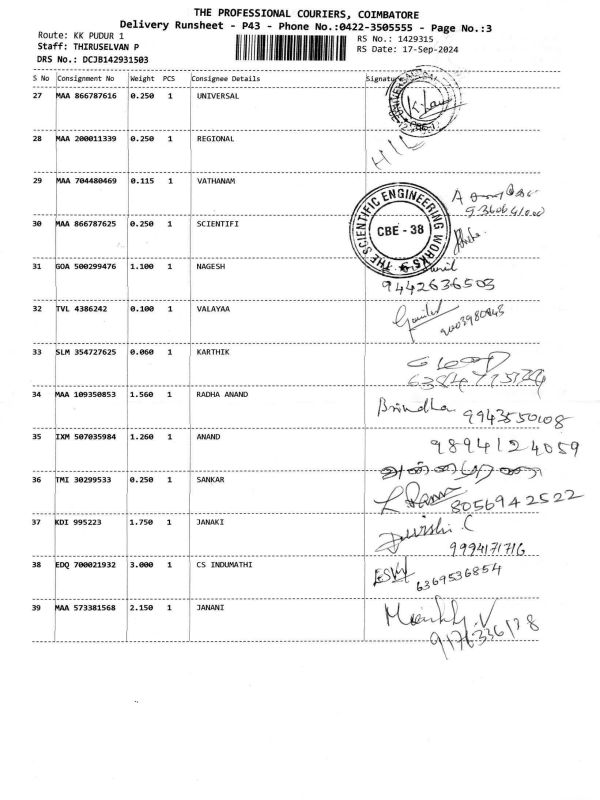 THE PROFESSIONAL COURIERS, COIMBATORE
Delivery Runsheet - P43 - Phone No.:0422-3505555 - Page No.:3
Route: KK PUDUR 1
RS No.: 1429315
Staff: THIRUSELVAN P
RS Date: 17-Sep-2024
DRS No.: DCJB142931503
S No Consignment No Weight PCS Consignee Details Signature
27 MAA 866787616 0.250 1 UNIVERSAL
28 MAA 200011339 0.250 1 REGIONAL
HIL
29 MAA 704480469 0.115 1 VATHANAM
THE SCIENTIFIC ENGINEERING WORKS
CBE - 38
30 MAA 866787625 0.250 1 SCIENTIFI
31 GOA 500299476 1.100 1 NAGESH
9442636503
32 TVL 4386242 0.100 1 VALAYAA
9003980843
33 SLM 354727625 0.060 1 KARTHIK
34 MAA 109350853 1.560 1 RADHA ANAND
Brindha 9943550108
35 IXM 507035984 1.260 1 ANAND
9894124059
36 TMI 30299533 0.250 1 SANKAR
8056942522
37 KDI 995223 1.750 1 JANAKI
9994171716
38 EDQ 700021932 3.000 1 CS INDUMATHI
ESKY 6369536854
39 MAA 573381568 2.150 1 JANANI
9176336178